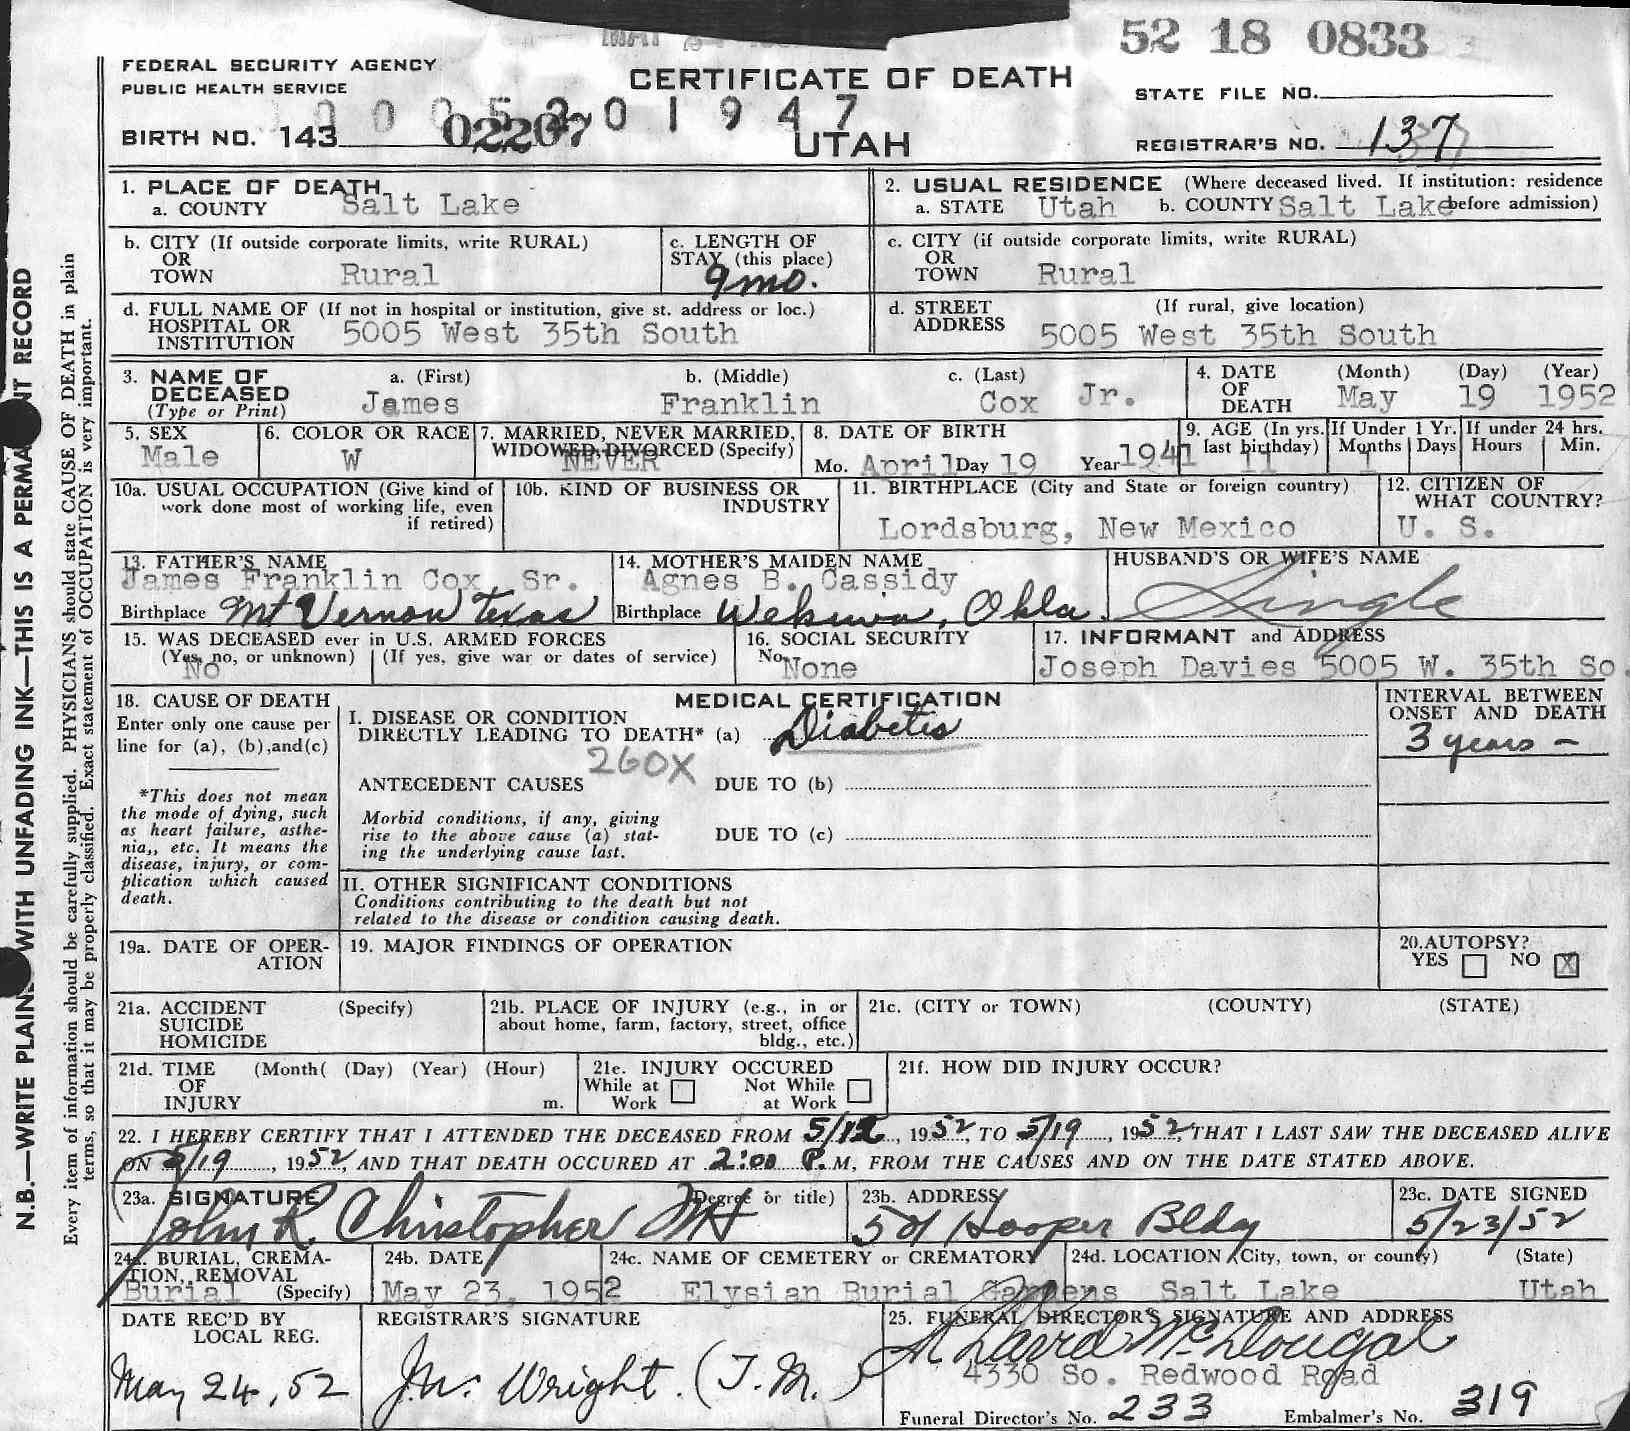 52 18 0833
FEDERAL SECURITY AGENCY
PUBLIC HEALTH SERVICE
CERTIFICATE OF DEATH
STATE FILE NO.
BIRTH NO. 143 02207 201947
UTAH
REGISTRAR'S NO. 137
1. PLACE OF DEATH
a. COUNTY Salt Lake
2. USUAL RESIDENCE (Where deceased lived. If institution: residence before admission)
a. STATE Utah b. COUNTY Salt Lake
b. CITY (If outside corporate limits, write RURAL)
OR
TOWN Rural
c. LENGTH OF
STAY (this place)
9mo.
c. CITY (if outside corporate limits, write RURAL)
OR
TOWN Rural
d. FULL NAME OF (If not in hospital or institution, give st. address or loc.)
HOSPITAL OR
INSTITUTION 5005 West 35th South
d. STREET (If rural, give location)
ADDRESS 5005 West 35th South
3. NAME OF
DECEASED
(Type or Print)
a. (First) b. (Middle) c. (Last)
James Franklin Cox Jr.
4. DATE (Month) (Day) (Year)
OF
DEATH May 19 1952
5. SEX
Male
6. COLOR OR RACE
W
7. MARRIED, NEVER MARRIED,
WIDOWED, DIVORCED (Specify)
NEVER
8. DATE OF BIRTH
Mo. April Day 19 Year 1941
9. AGE (In yrs. last birthday) 11
If Under 1 Yr. Months 1 Days
If under 24 hrs. Hours Min.
10a. USUAL OCCUPATION (Give kind of
work done most of working life, even
if retired)
10b. KIND OF BUSINESS OR
INDUSTRY
11. BIRTHPLACE (City and State or foreign country)
Lordsburg, New Mexico
12. CITIZEN OF
WHAT COUNTRY?
U. S.
13. FATHER'S NAME
James Franklin Cox Sr.
Birthplace Mt Vernon Texas
14. MOTHER'S MAIDEN NAME
Agnes B. Cassidy
Birthplace Okla.
HUSBAND'S OR WIFE'S NAME
Single
15. WAS DECEASED ever in U.S. ARMED FORCES
(Yes, no, or unknown) (If yes, give war or dates of service)
No
16. SOCIAL SECURITY
No. None
17. INFORMANT and ADDRESS
Joseph Davies 5005 W. 35th So.
18. CAUSE OF DEATH
Enter only one cause per
line for (a), (b),and(c)
*This does not mean
the mode of dying, such
as heart failure, asthe-
nia,, etc. It means the
disease, injury, or com-
plication which caused
death.
MEDICAL CERTIFICATION
I. DISEASE OR CONDITION
DIRECTLY LEADING TO DEATH* (a) Diabetis
260X
ANTECEDENT CAUSES DUE TO (b)
Morbid conditions, if any, giving
rise to the above cause (a) stat-
ing the underlying cause last.
DUE TO (c)
INTERVAL BETWEEN
ONSET AND DEATH
3 years -
II. OTHER SIGNIFICANT CONDITIONS
Conditions contributing to the death but not
related to the disease or condition causing death.
19a. DATE OF OPER-
ATION
19. MAJOR FINDINGS OF OPERATION
20.AUTOPSY?
YES NO X
21a. ACCIDENT (Specify)
SUICIDE
HOMICIDE
21b. PLACE OF INJURY (e.g., in or
about home, farm, factory, street, office
bldg., etc.)
21c. (CITY or TOWN) (COUNTY) (STATE)
21d. TIME (Month( (Day) (Year) (Hour)
OF
INJURY m.
21e. INJURY OCCURED
While at Work Not While at Work
21f. HOW DID INJURY OCCUR?
22. I HEREBY CERTIFY THAT I ATTENDED THE DECEASED FROM 5/12, 1952, TO 5/19, 1952, THAT I LAST SAW THE DECEASED ALIVE
ON 5/19, 1952, AND THAT DEATH OCCURED AT 2:00 P.M, FROM THE CAUSES AND ON THE DATE STATED ABOVE.
23a. SIGNATURE (Degree or title)
John R. Christopher
23b. ADDRESS
501 Hooper Bldg
23c. DATE SIGNED
5/23/52
24a. BURIAL, CREMA-
TION, REMOVAL
Burial (Specify)
24b. DATE
May 23, 1952
24c. NAME OF CEMETERY or CREMATORY
Elysian Burial Gardens
24d. LOCATION (City, town, or county) (State)
Salt Lake Utah
DATE REC'D BY
LOCAL REG.
May 24, 52
REGISTRAR'S SIGNATURE
J.W. Wright. (T.M.)
25. FUNERAL DIRECTOR'S SIGNATURE AND ADDRESS
David McDougal
4330 So. Redwood Road
Funeral Director's No. 233 Embalmer's No. 319
N.B.—WRITE PLAIN WITH UNFADING INK—THIS IS A PERMA NT RECORD
Every item of information should be carefully supplied. PHYSICIANS should state CAUSE OF DEATH in plain
terms, so that it may be properly classified. Exact statement of OCCUPATION is very important.